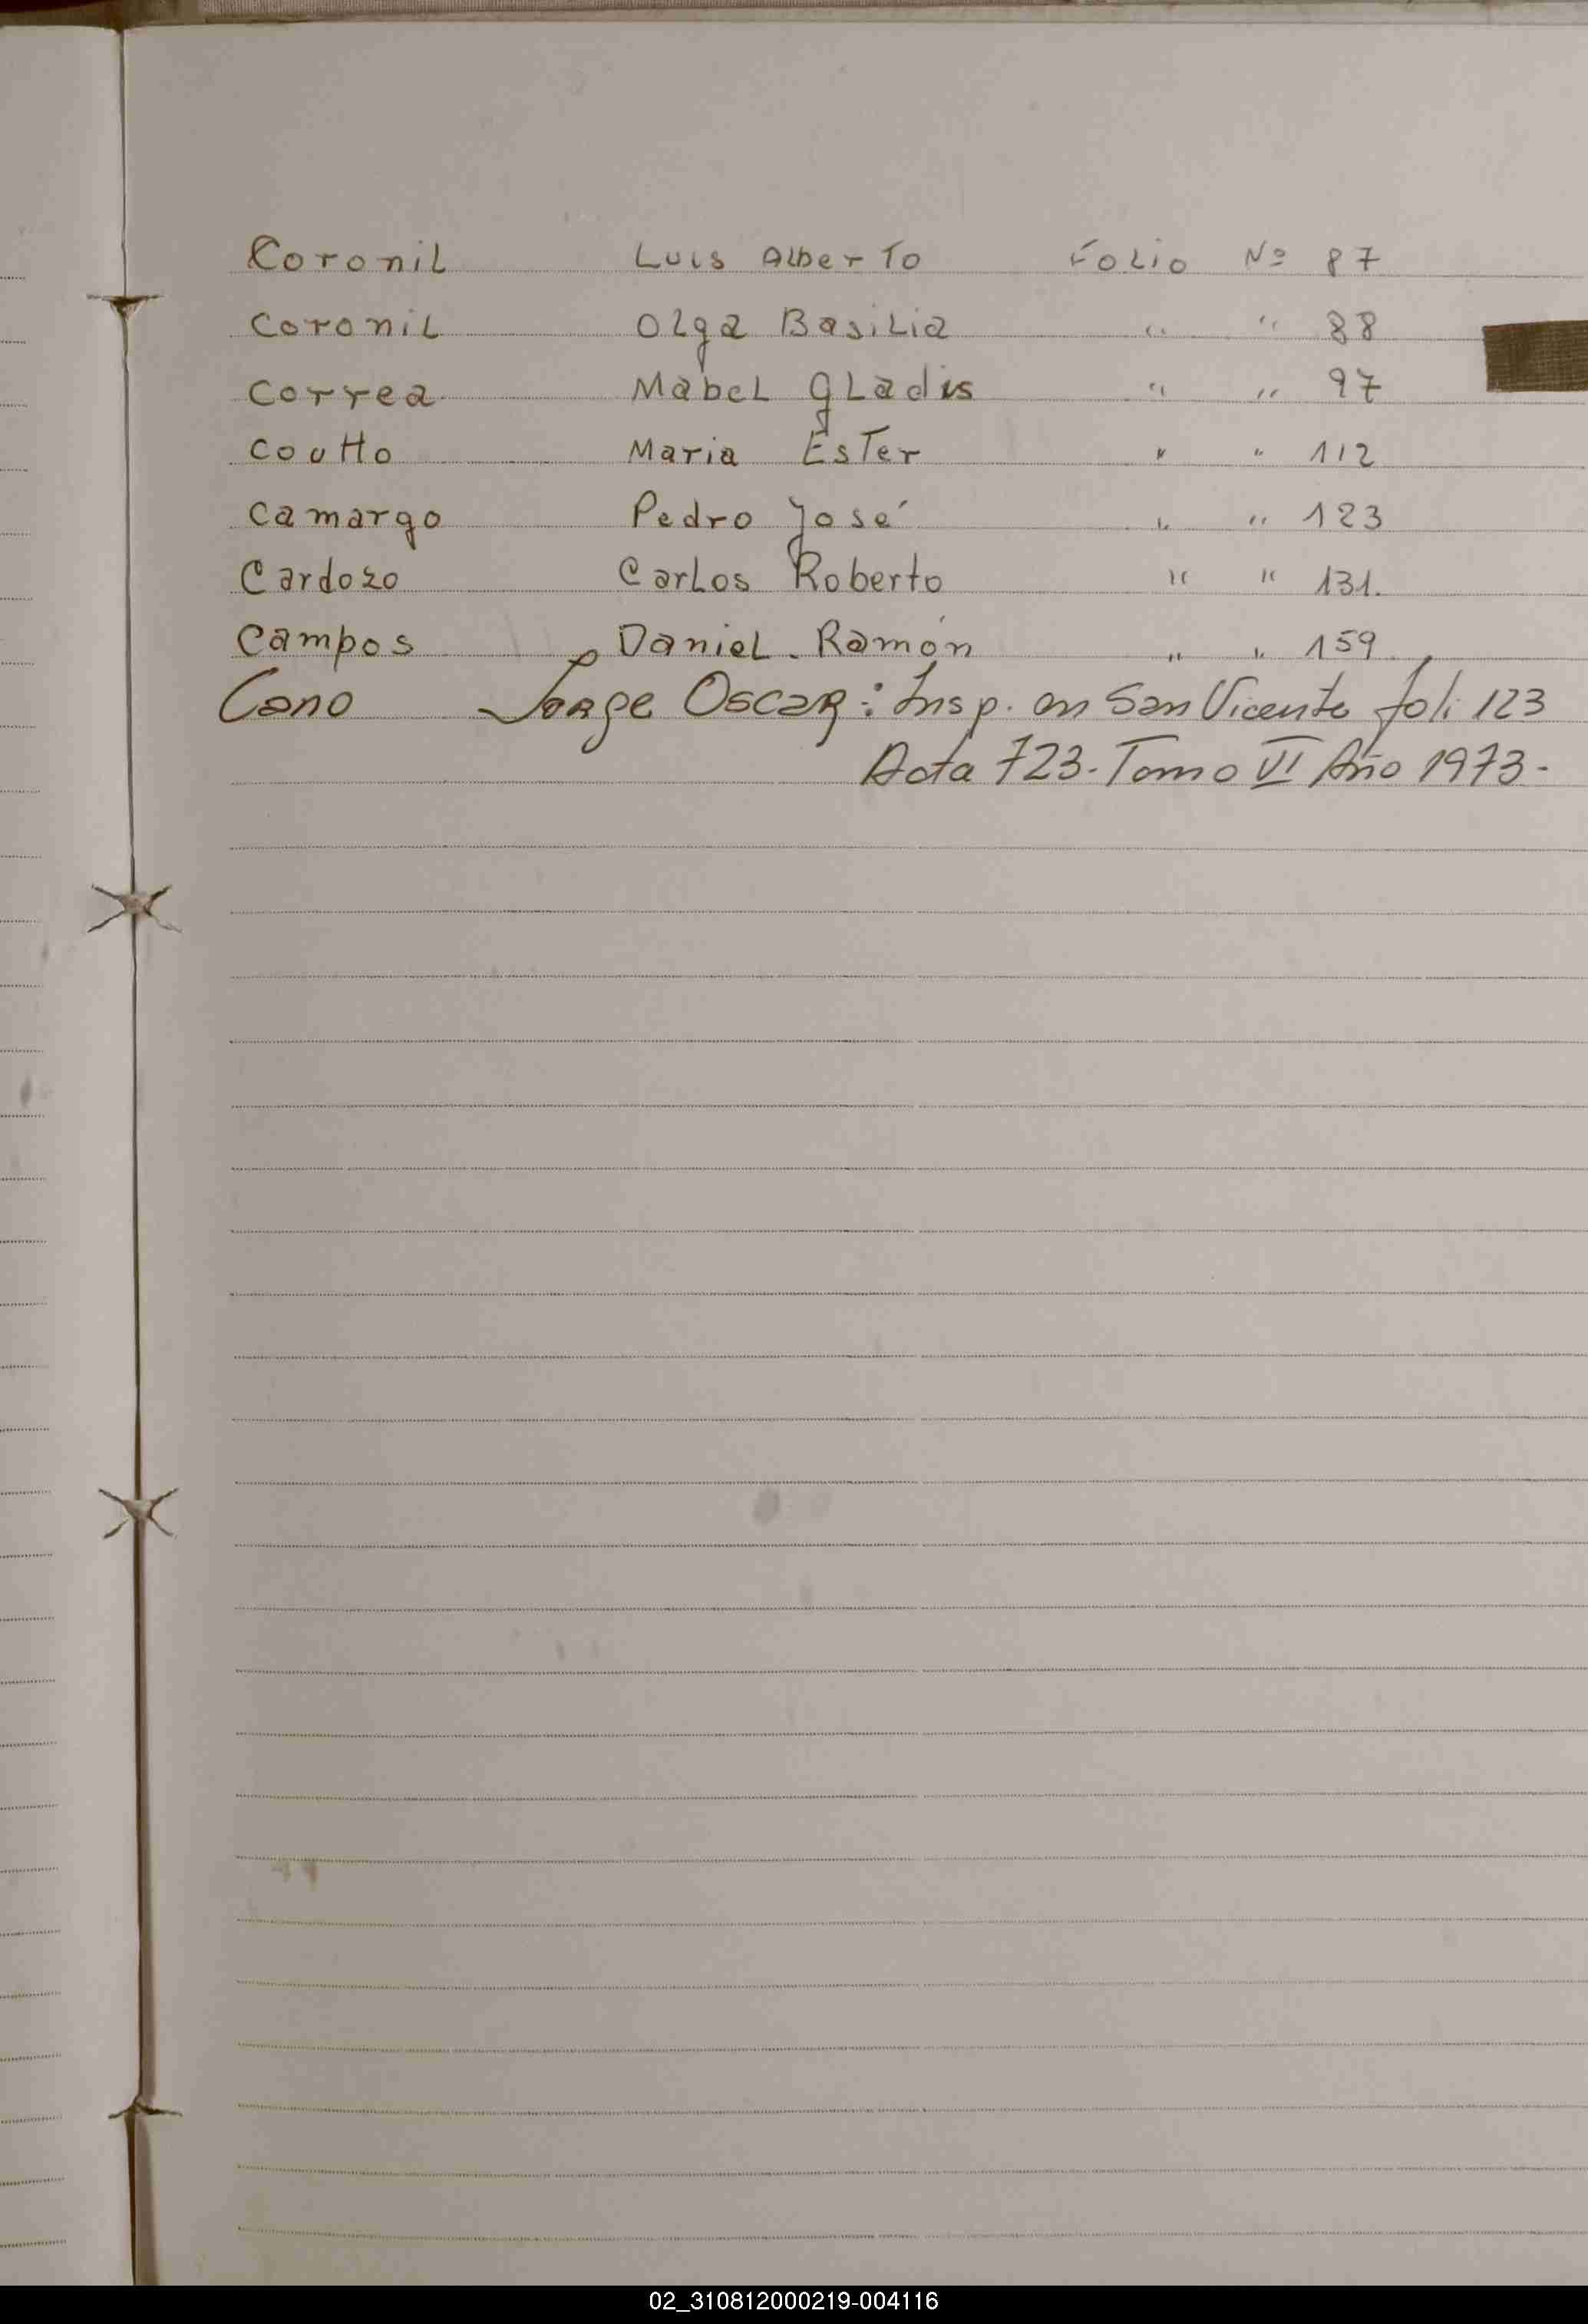 Coronil Luis Alberto Folio Nº 87
Coronil Olga Basilia " " 88
Correa Mabel Gladis " " 97
Coutto Maria Ester " " 112
Camargo Pedro José " " 123
Cardozo Carlos Roberto " " 131.
Campos Daniel. Ramón " " 159.
Cano Jorge Oscar: Insp. en San Vicente foli 123
Acta 723. Tomo VI Año 1973-
02_310812000219-004116